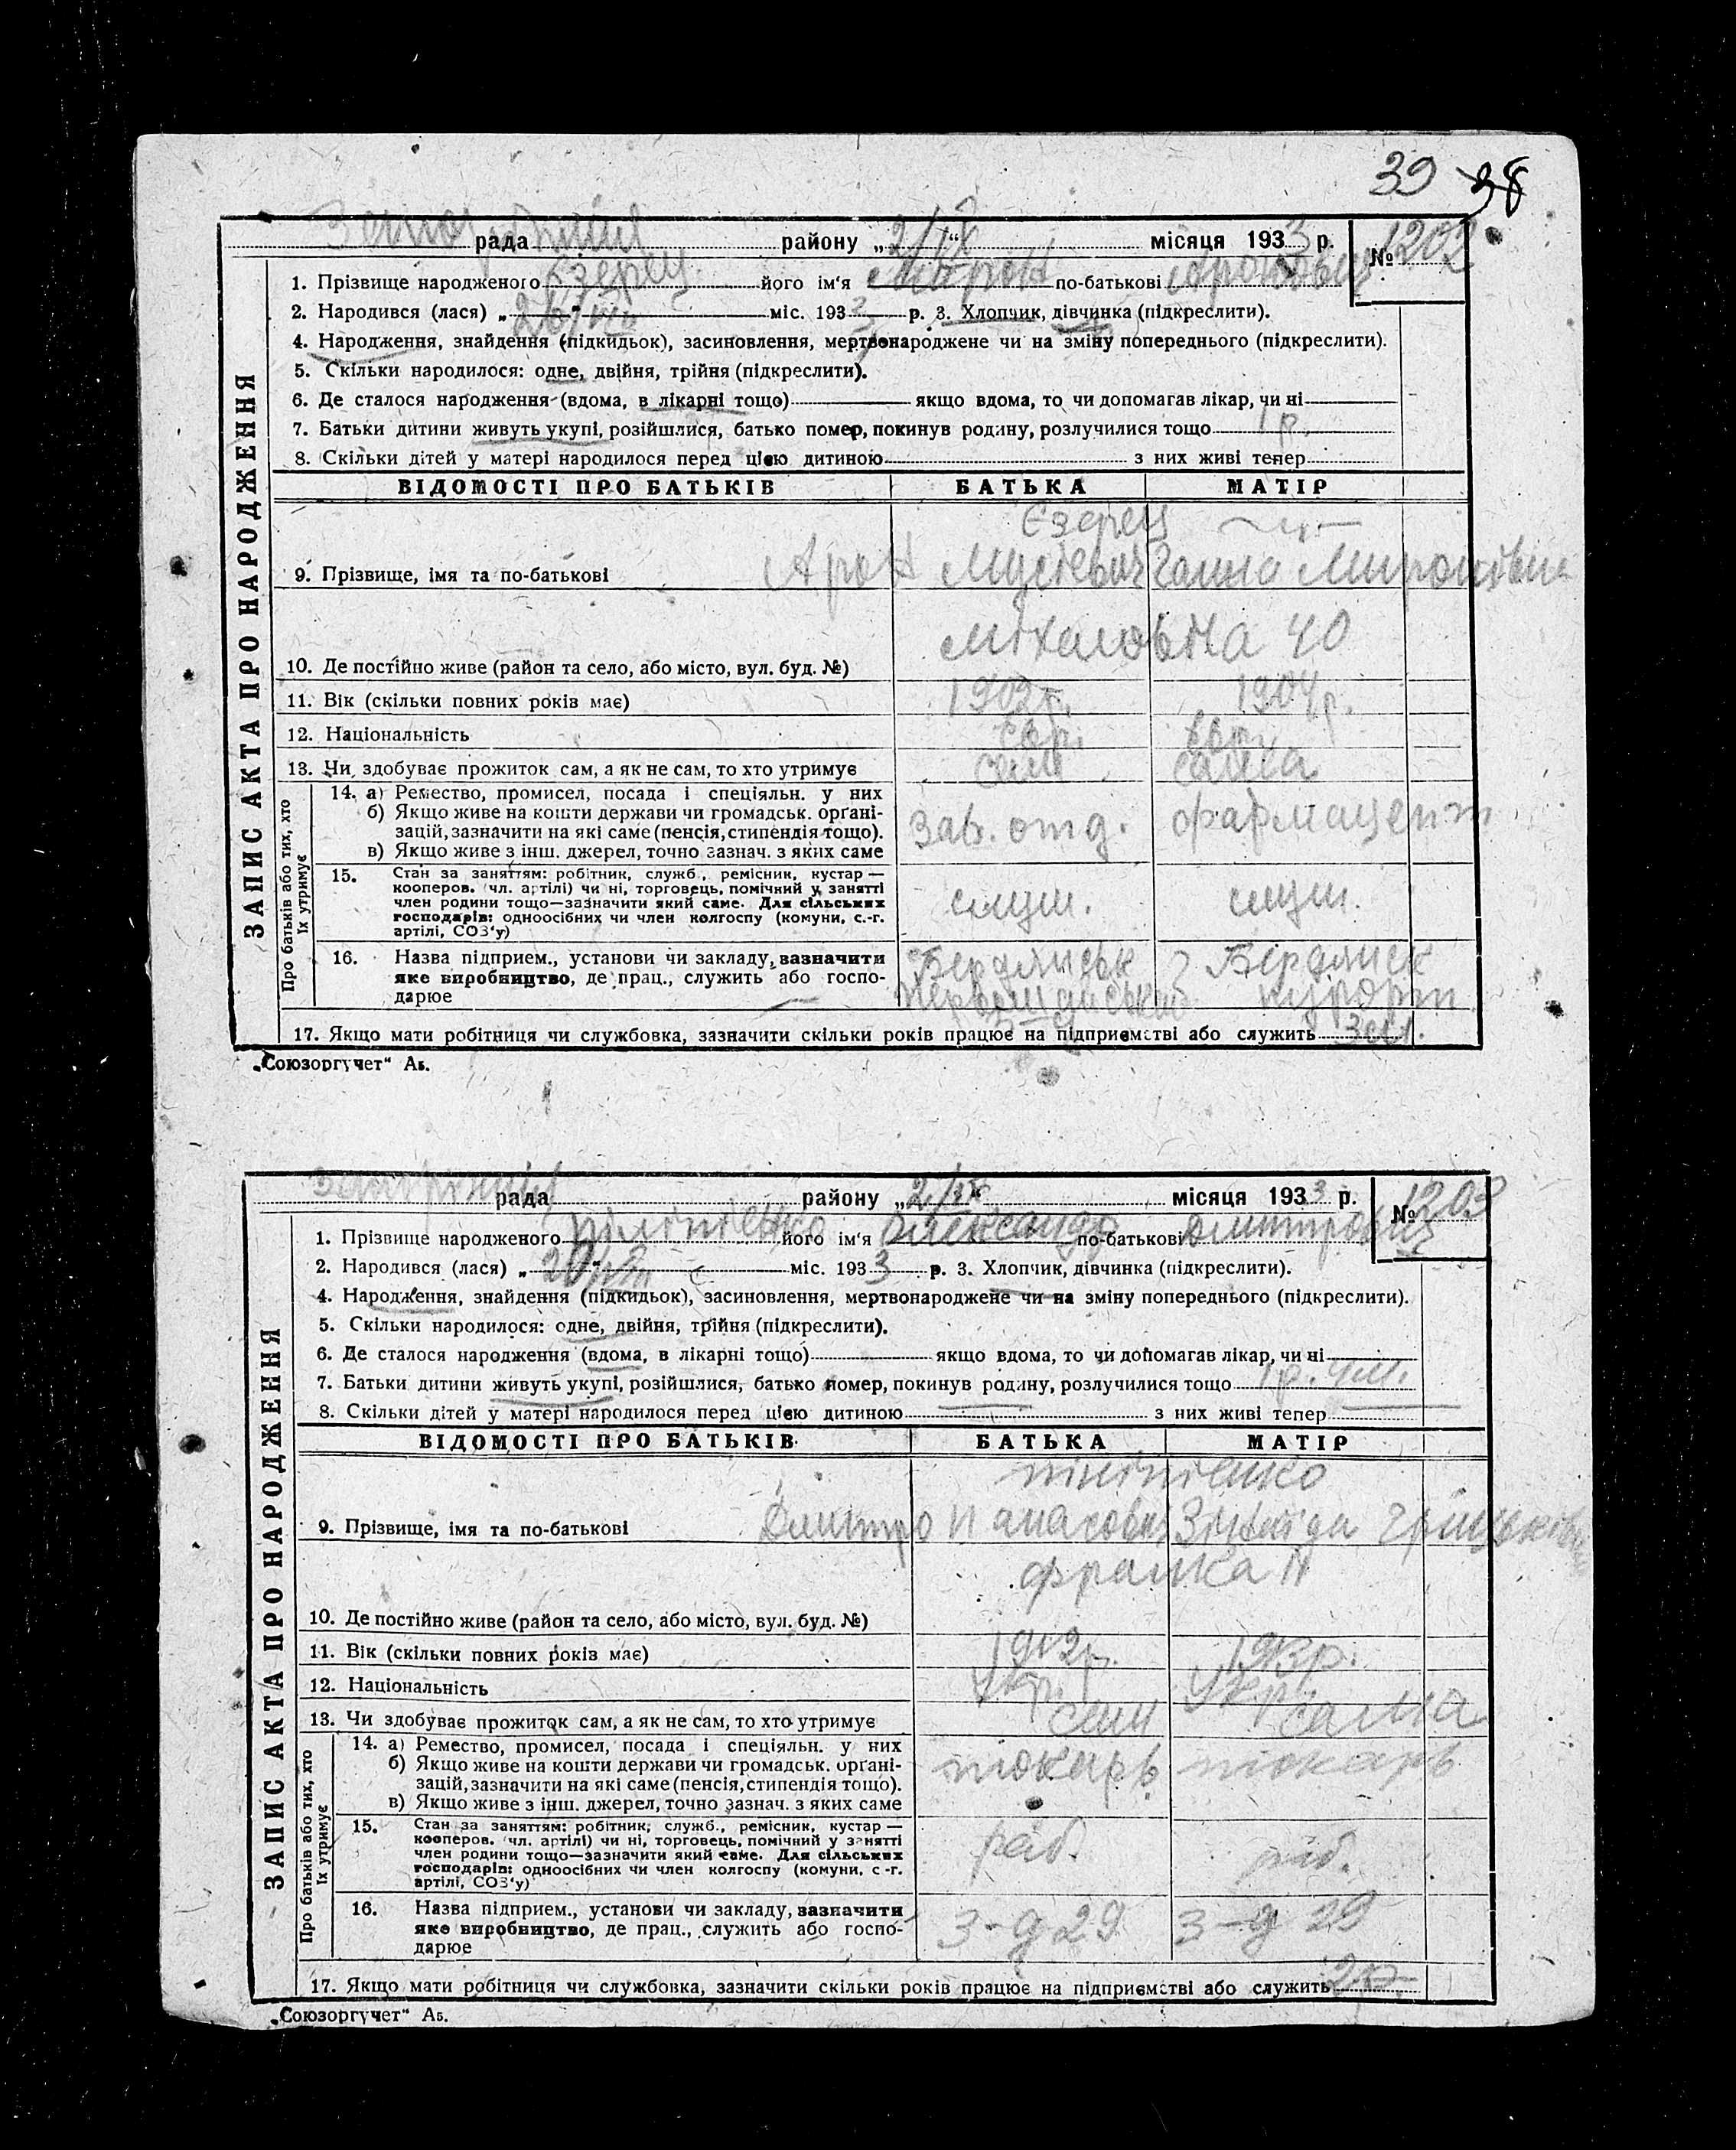 39 38
рада району „2/IX“ місяця 1933 р. № 1202
1. Прізвище народженого Єзерец його ім'я по-батькові Аронович
2. Народився (лася) „26/VIII“ міс. 1933 р. 3. Хлопчик, дівчинка (підкреслити).
4. Народження, знайдення (підкидьок), засиновлення, мертвонароджене чи на зміну попереднього (підкреслити).
5. Скільки народилося: одне, двійня, трійня (підкреслити).
6. Де сталося народження (вдома, в лікарні тощо) якщо вдома, то чи допомагав лікар, чи ні
7. Батьки дитини живуть укупі, розійшлися, батько помер, покинув родину, розлучилися тощо 1 р.
8. Скільки дітей у матері народилося перед цією дитиною з них живі тепер
ЗАПИС АКТА ПРО НАРОДЖЕННЯ
ВІДОМОСТІ ПРО БАТЬКІВ БАТЬКА МАТІР
Єзерец — „ —
9. Прізвище, імя та по-батькові Арон Мусієвич Ганна Миронівна
10. Де постійно живе (район та село, або місто, вул. буд. №) 40
11. Вік (скільки повних років має) 1902 р. 1904 р.
12. Національність євр. євр.
13. Чи здобуває прожиток сам, а як не сам, то хто утримує сам сама
Про батьків або тих, хто їх утримує
14. а) Ремество, промисел, посада і спеціяльн. у них
б) Якщо живе на кошти держави чи громадськ. орґані-
зацій, зазначити на які саме (пенсія, стипендія тощо). Зав. отд. фармацент
в) Якщо живе з інш. джерел, точно зазнач. з яких саме
15. Стан за заняттям: робітник, служб., ремісник, кустар —
кооперов. (чл. артілі) чи ні, торговець, помічний у занятті
член родини тощо—зазначити який саме. Для сільських служ. служ.
господарів: одноосібних чи член колгоспу (комуни, с.-г.
артілі, СОЗ'у)
16. Назва підприєм., установи чи закладу, зазначити Бердянськ Бердянск
яке виробництво, де прац., служить або госпо- курорт
дарює
17. Якщо мати робітниця чи службовка, зазначити скільки років працює на підприємстві або служить
„Союзоргучет“ Аб.
рада району „2/IX“ місяця 1933 р. № 1203
1. Прізвище народженого Піліпієнко його ім'я Олександр по-батькові Дмитрович
2. Народився (лася) „20/VIII“ міс. 1933 р. 3. Хлопчик, дівчинка (підкреслити).
4. Народження, знайдення (підкидьок), засиновлення, мертвонароджене чи на зміну попереднього (підкреслити).
5. Скільки народилося: одне, двійня, трійня (підкреслити).
6. Де сталося народження (вдома, в лікарні тощо) якщо вдома, то чи допомагав лікар, чи ні
7. Батьки дитини живуть укупі, розійшлися, батько помер, покинув родину, розлучилися тощо 1 р.
8. Скільки дітей у матері народилося перед цією дитиною з них живі тепер
ЗАПИС АКТА ПРО НАРОДЖЕННЯ
ВІДОМОСТІ ПРО БАТЬКІВ БАТЬКА МАТІР
Піліпієнко
9. Прізвище, імя та по-батькові Дмитро Панасович Зінаїда
Франка 11
10. Де постійно живе (район та село, або місто, вул. буд. №)
11. Вік (скільки повних років має) 1912 р. 1913 р.
12. Національність Укр. Укр.
13. Чи здобуває прожиток сам, а як не сам, то хто утримує сам сама
Про батьків або тих, хто їх утримує
14. а) Ремество, промисел, посада і спеціяльн. у них
б) Якщо живе на кошти держави чи громадськ. орґані- токарь токарь
зацій, зазначити на які саме (пенсія, стипендія тощо).
в) Якщо живе з інш. джерел, точно зазнач. з яких саме
15. Стан за заняттям: робітник, служб., ремісник, кустар —
кооперов. (чл. артілі) чи ні, торговець, помічний у занятті
член родини тощо—зазначити який саме. Для сільських роб. роб.
господарів: одноосібних чи член колгоспу (комуни, с-г.
артілі, СОЗ'у)
16. Назва підприєм., установи чи закладу, зазначити
яке виробництво, де прац., служить або госпо- З-д 29 З-д 29
дарює
17. Якщо мати робітниця чи службовка, зазначити скільки років працює на підприємстві або служить 2 р.
„Союзоргучет“ Аб.